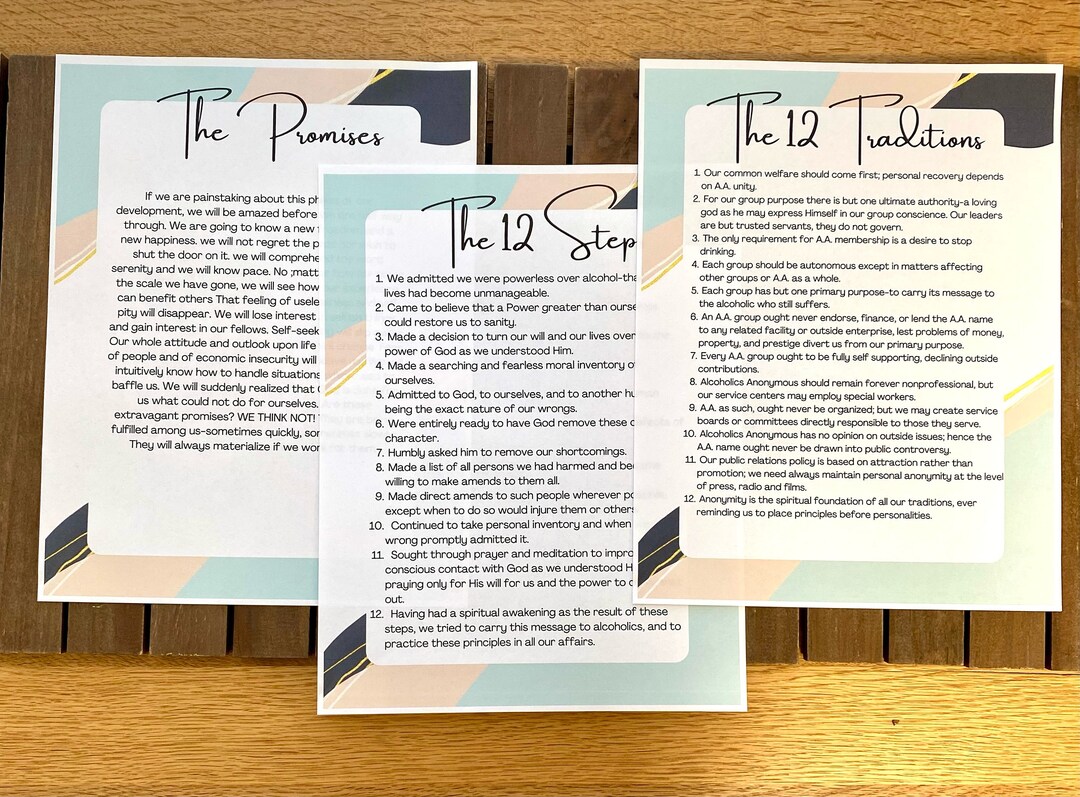 The Promises
If we are painstaking about this ph
development, we will be amazed before
through. We are going to know a new
new happiness. we will not regret the p
shut the door on it. we will comprehe
serenity and we will know pace. No ;matt
the scale we have gone, we will see how
can benefit others That feeling of usele
pity will disappear. We will lose interest
and gain interest in our fellows. Self-seek
Our whole attitude and outlook upon life
of people and of economic insecurity will
intuitively know how to handle situations
baffle us. We will suddenly realized that
us what could not do for ourselves.
extravagant promises? WE THINK NOT!
fulfilled among us-sometimes quickly, so
They will always materialize if we wor
The 12 Step
1. We admitted we were powerless over alcohol-tha
lives had become unmanageable.
2. Came to believe that a Power greater than ourse
could restore us to sanity.
3. Made a decision to turn our will and our lives over
power of God as we understood Him.
4. Made a searching and fearless moral inventory o
ourselves.
5. Admitted to God, to ourselves, and to another hu
being the exact nature of our wrongs.
6. Were entirely ready to have God remove these
character.
7. Humbly asked him to remove our shortcomings.
8. Made a list of all persons we had harmed and be
willing to make amends to them all.
9. Made direct amends to such people wherever po
except when to do so would injure them or others
10. Continued to take personal inventory and when
wrong promptly admitted it.
11. Sought through prayer and meditation to impro
conscious contact with God as we understood H
praying only for His will for us and the power to c
out.
12. Having had a spiritual awakening as the result of these
steps, we tried to carry this message to alcoholics, and to
practice these principles in all our affairs.
The 12 Traditions
1. Our common welfare should come first; personal recovery depends
on A.A. unity.
2. For our group purpose there is but one ultimate authority-a loving
god as he may express Himself in our group conscience. Our leaders
are but trusted servants, they do not govern.
3. The only requirement for A.A. membership is a desire to stop
drinking.
4. Each group should be autonomous except in matters affecting
other groups or A.A. as a whole.
5. Each group has but one primary purpose-to carry its message to
the alcoholic who still suffers.
6. An A.A. group ought never endorse, finance, or lend the A.A. name
to any related facility or outside enterprise, lest problems of money,
property, and prestige divert us from our primary purpose.
7. Every A.A. group ought to be fully self supporting, declining outside
contributions.
8. Alcoholics Anonymous should remain forever nonprofessional, but
our service centers may employ special workers.
9. A.A. as such, ought never be organized; but we may create service
boards or committees directly responsible to those they serve.
10. Alcoholics Anonymous has no opinion on outside issues; hence the
A.A. name ought never be drawn into public controversy.
11. Our public relations policy is based on attraction rather than
promotion; we need always maintain personal anonymity at the level
of press, radio and films.
12. Anonymity is the spiritual foundation of all our traditions, ever
reminding us to place principles before personalities.